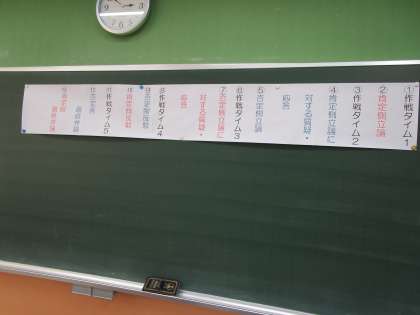 ①作戦タイム1
②肯定側立論
③作戦タイム2
④肯定側立論に
対する質疑・
応答
⑤否定側立論
⑥作戦タイム3
⑦否定側立論に
対する質疑・
応答
⑧作戦タイム4
⑨否定側反駁
⑩肯定側反駁
⑪作戦タイム5